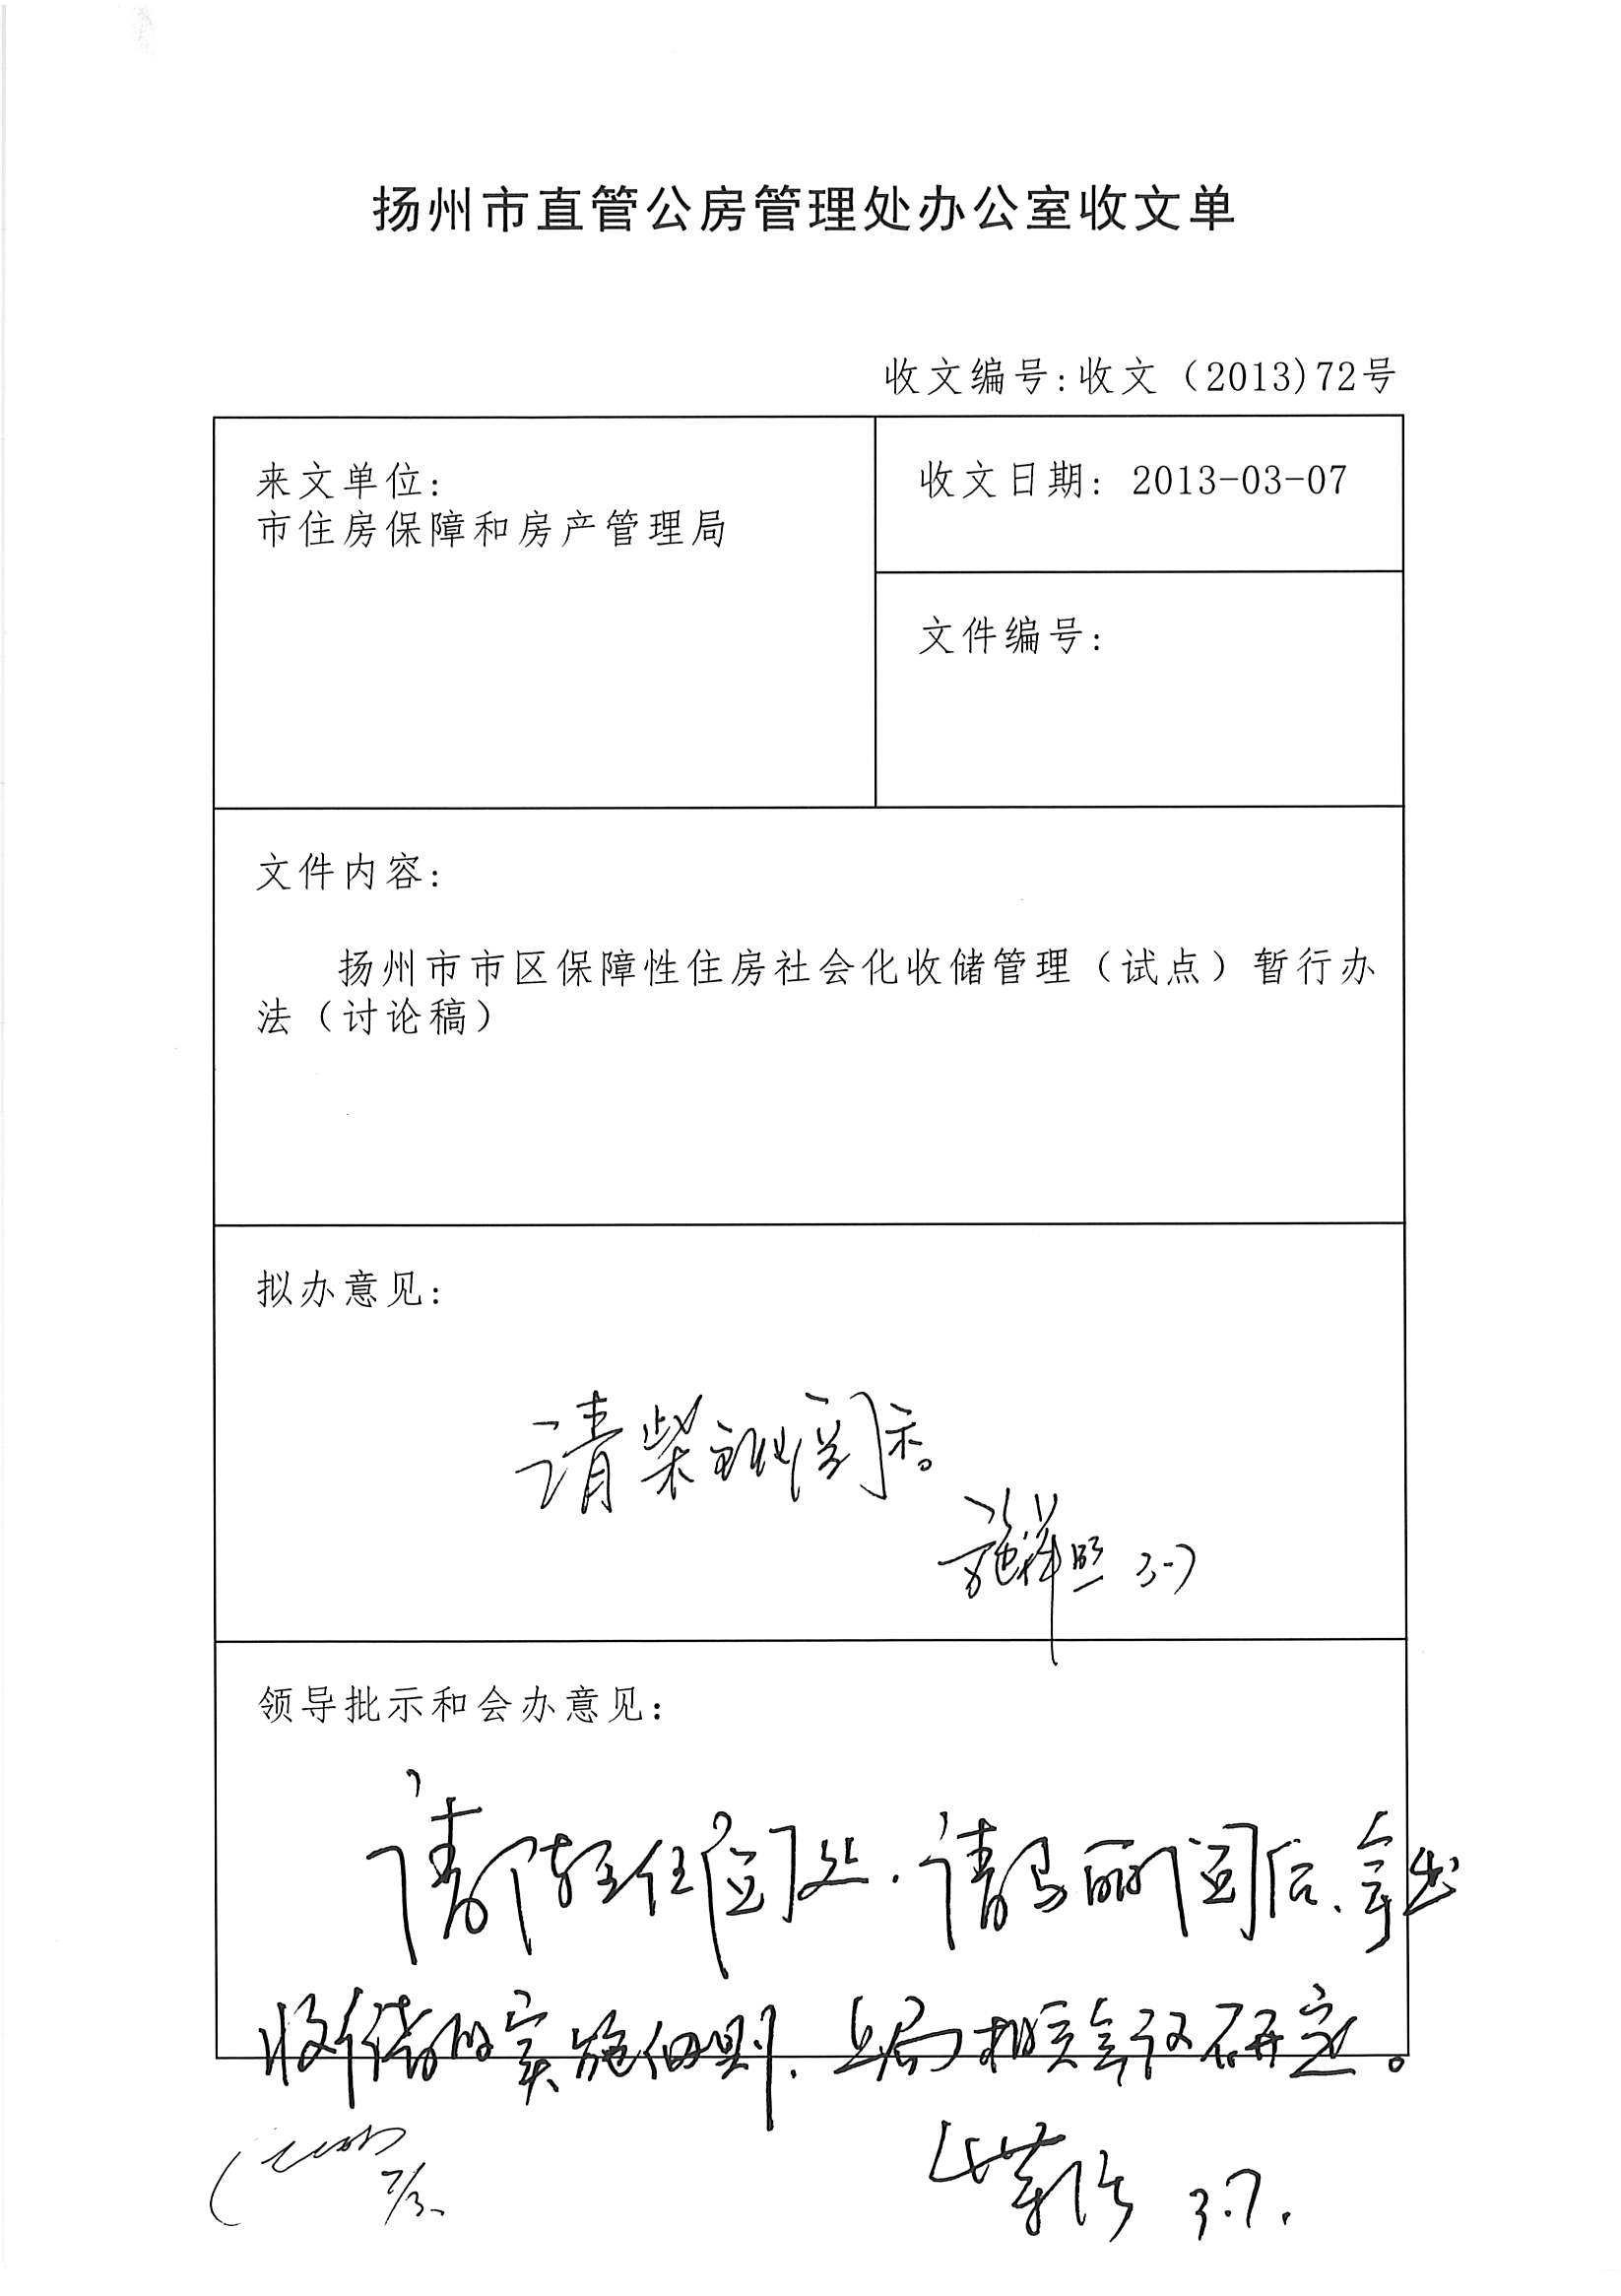 扬州市直管公房管理处办公室收文单
收文编号:收文（2013)72号
来文单位:
市住房保障和房产管理局
收文日期: 2013-03-07
文件编号:
文件内容:
扬州市市区保障性住房社会化收储管理（试点）暂行办
法（讨论稿）
拟办意见:
请柴主任阅示。
施祥照 3-7
领导批示和会办意见:
请 主任阅处。请马丽阅后、拿出
收储的实施细则、上局相关会议研定。
柴 3.7.
7/3.